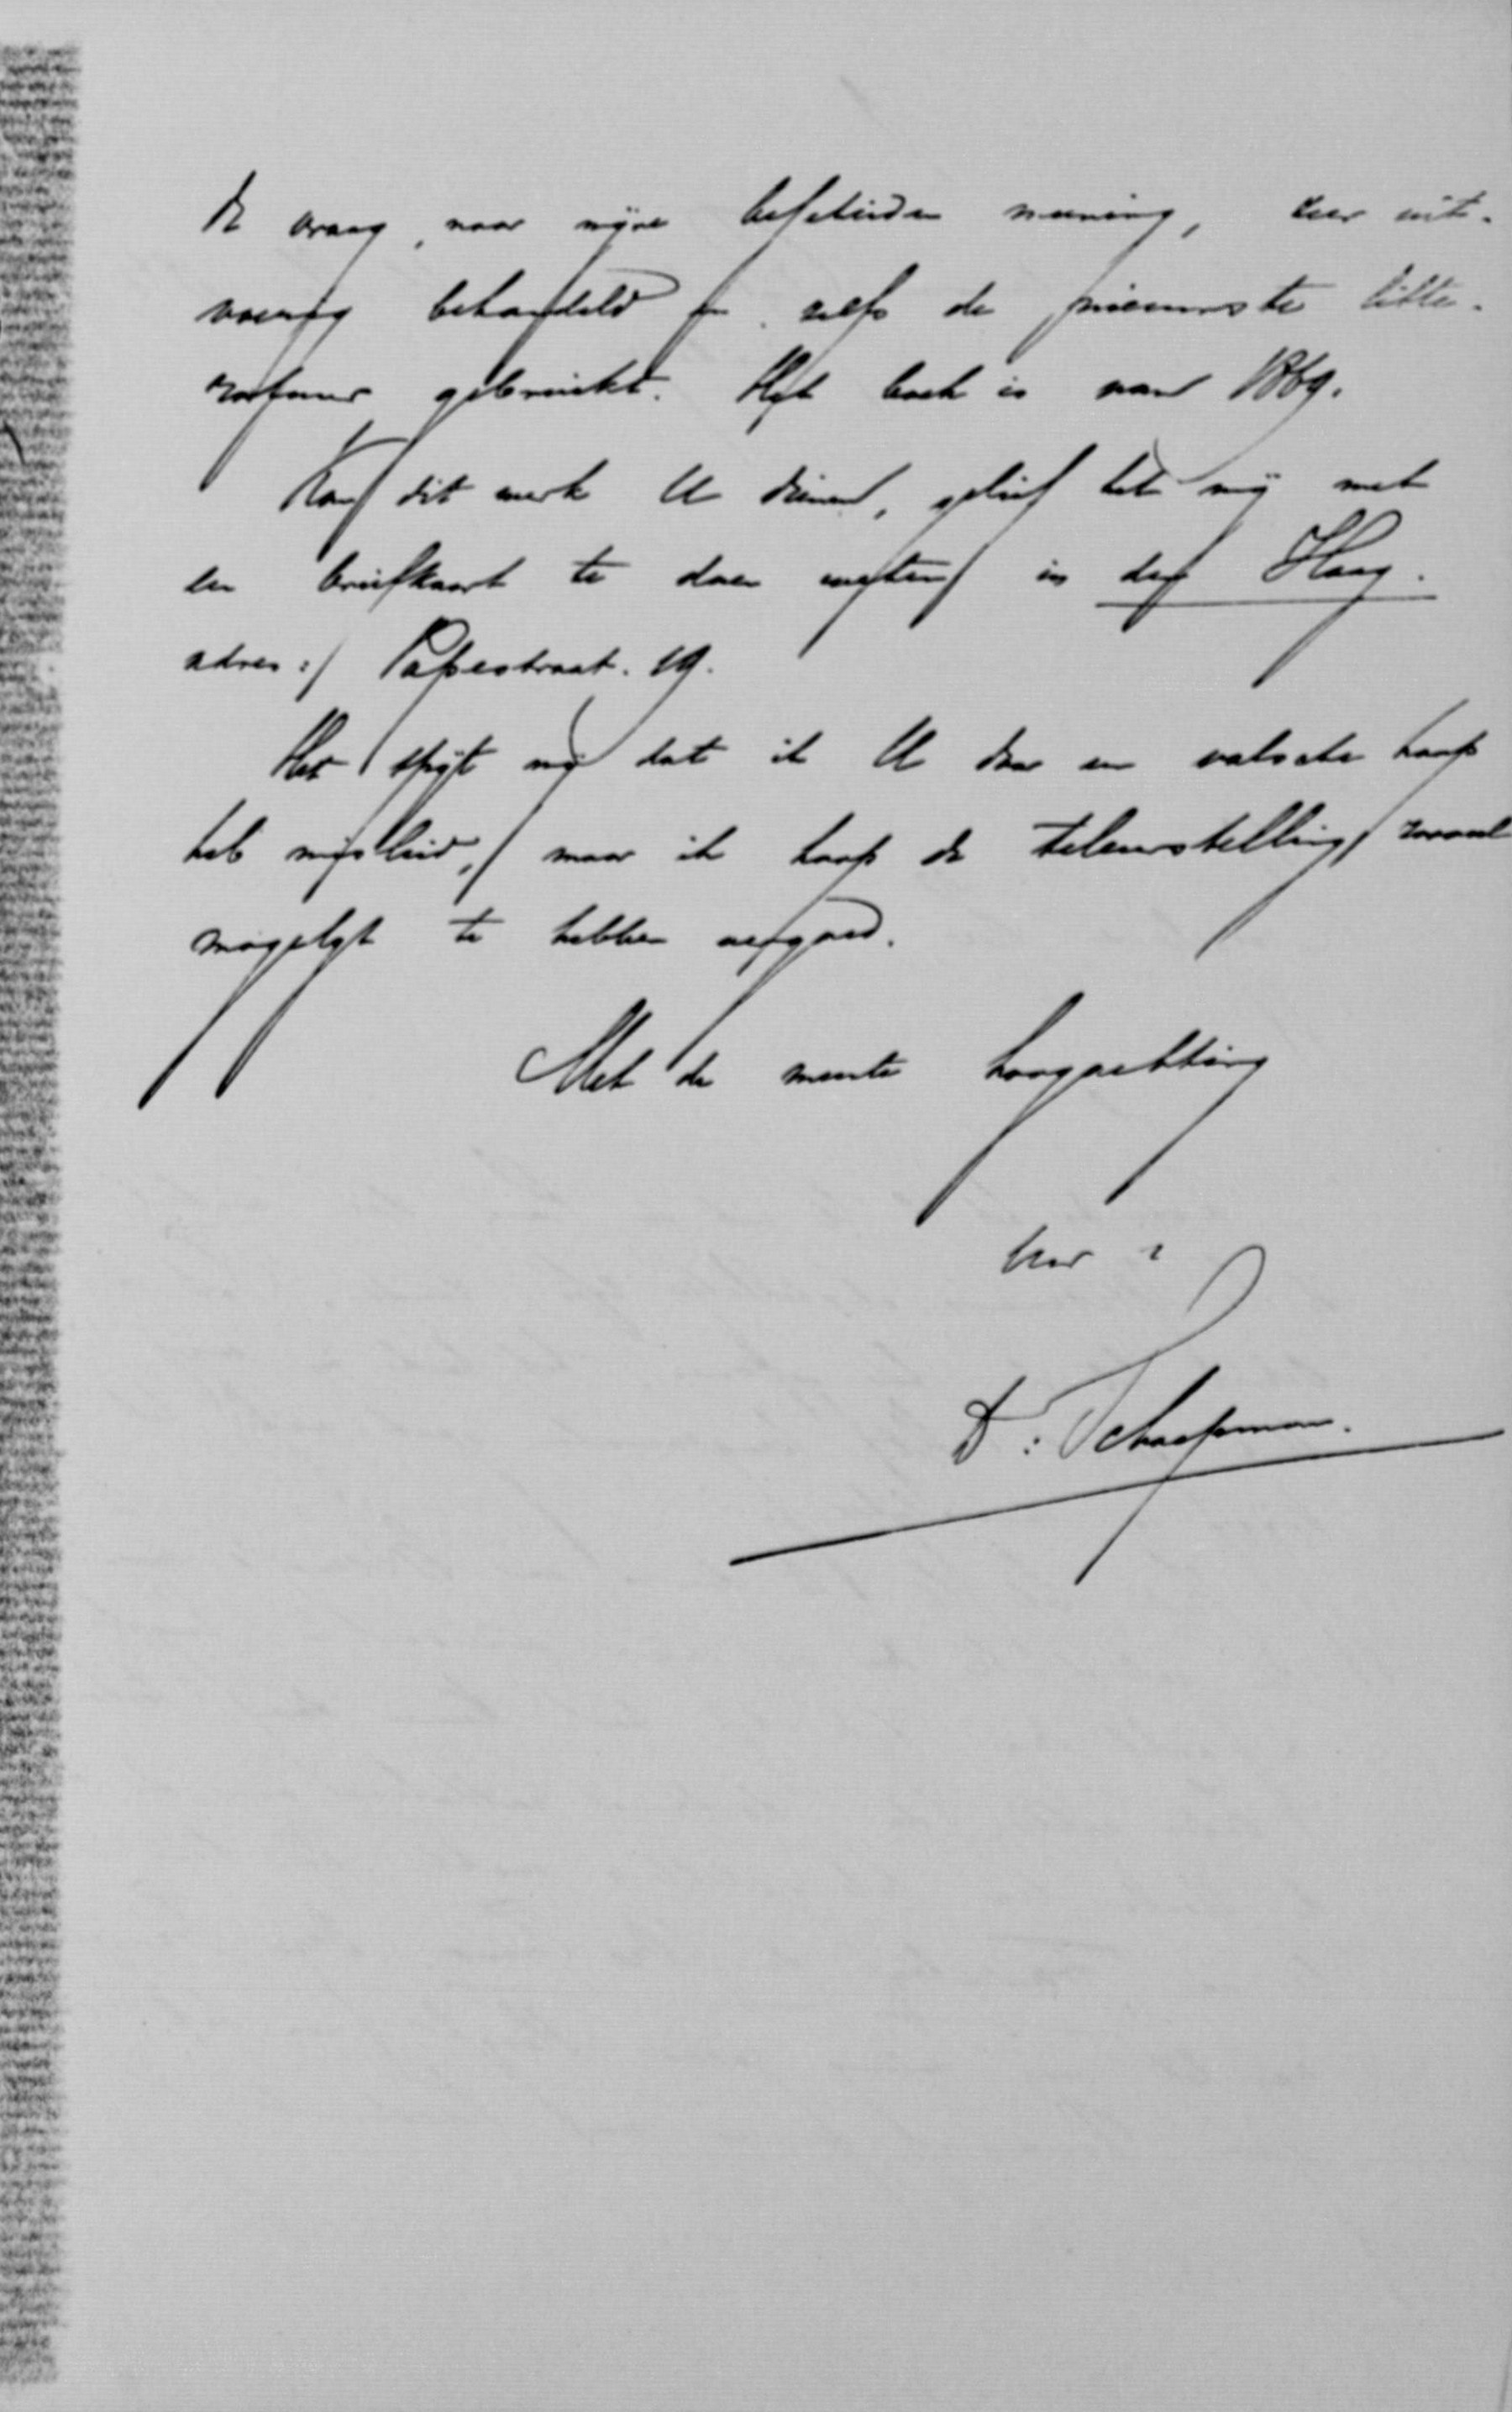 de vraag, naar mijne bescheiden meening, zeer uit-
voerig behandeld en zelfs de nieuwste litte-
ratuur gebruikt. Het boek is van 1869.
Kan dit werk U dienen, gelief het mij met
een briefkaart te doen weten in den Haag.
adres: Papestraat. 19.
Het spijt mij dat ik U door een valsche hoop
heb misleid, maar ik hoop de teleurstelling zooveel
mogelijk te hebben vergoed.
Met de meeste hoogachting
Dr: Schaepman.